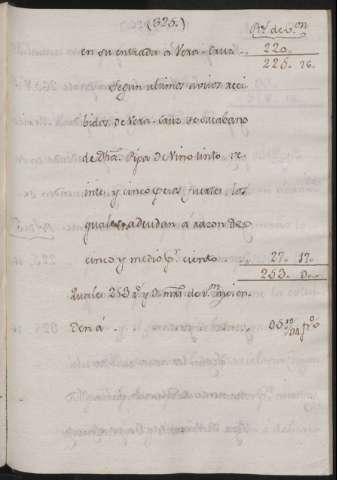 (325.)
Rs. de von
en su entrada à Vera-Cruz . . 220.
225. 26.
Segun ultimos avisos reci
bidos de Vera-Cruz se vaca bano
de Dha. Pipa de Vino tinto ve
inte y cinco pesos fuertes los
quales adeudan á razon de
cinco y medio pr. ciento 27. 17.
253. 9.
Quales 253 rs. y 9 mrs. de von
Den á